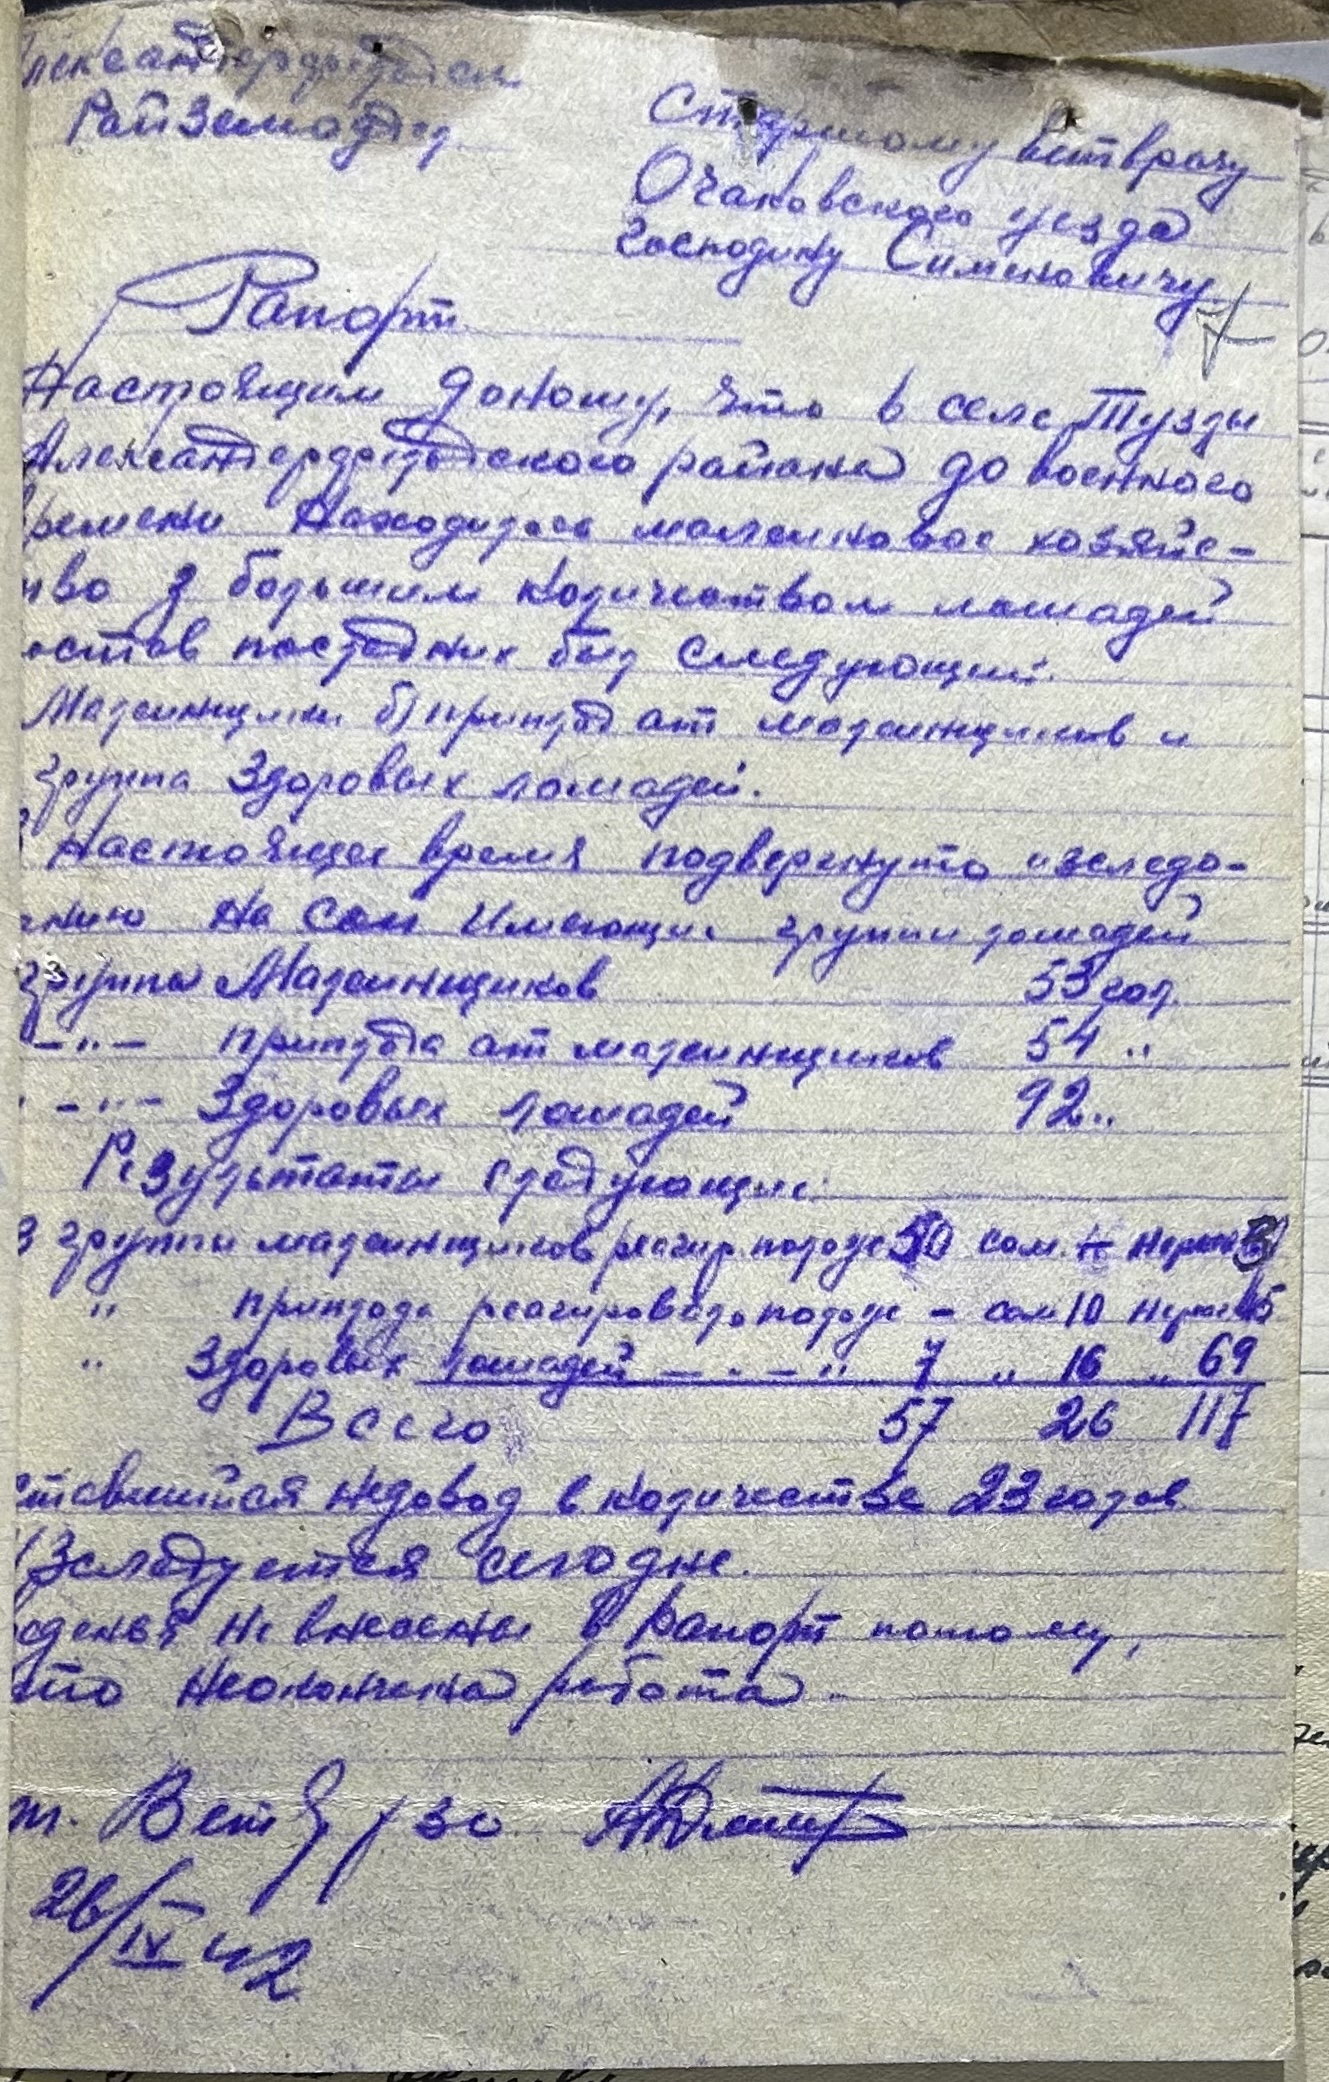 Александерфельдский
Райземотдел
Старшому ветврачу
Очаковского уезда
господину Симиновичу
Рапорт
Настоящим доношу, что в селе Тузлы
Александерфельдского района до военного
времени находилось маллеиновое хозяйс-
тво з большим количеством лошадей
состав последних был следующий:
Маллеинщики б) приплод от маллеинщиков и
группа здоровых лошадей.
В настоящее время подвергнуто изследо-
ванию на сап имеющие группи лошадей
группа Маллеинщиков 53 гол.
-"- приплода от маллеинщиков 54 "
-"- Здоровых лошадей 92 "
Результаты следующие:
з группи маллеинщиков реагир. полож 50 сом. – Нереаг 3
" приплода реагировало полож – сом 10 Нереаг 45
" Здоровых лошадей — " — " 7 " 16 " 69
Всего 57 26 117
ставшийся недовод в количестве 23 голов
Изследуется сегодне.
сведенья не внесены в рапорт потому,
что неокончена работа.
Вет РЗО
26/IV 42